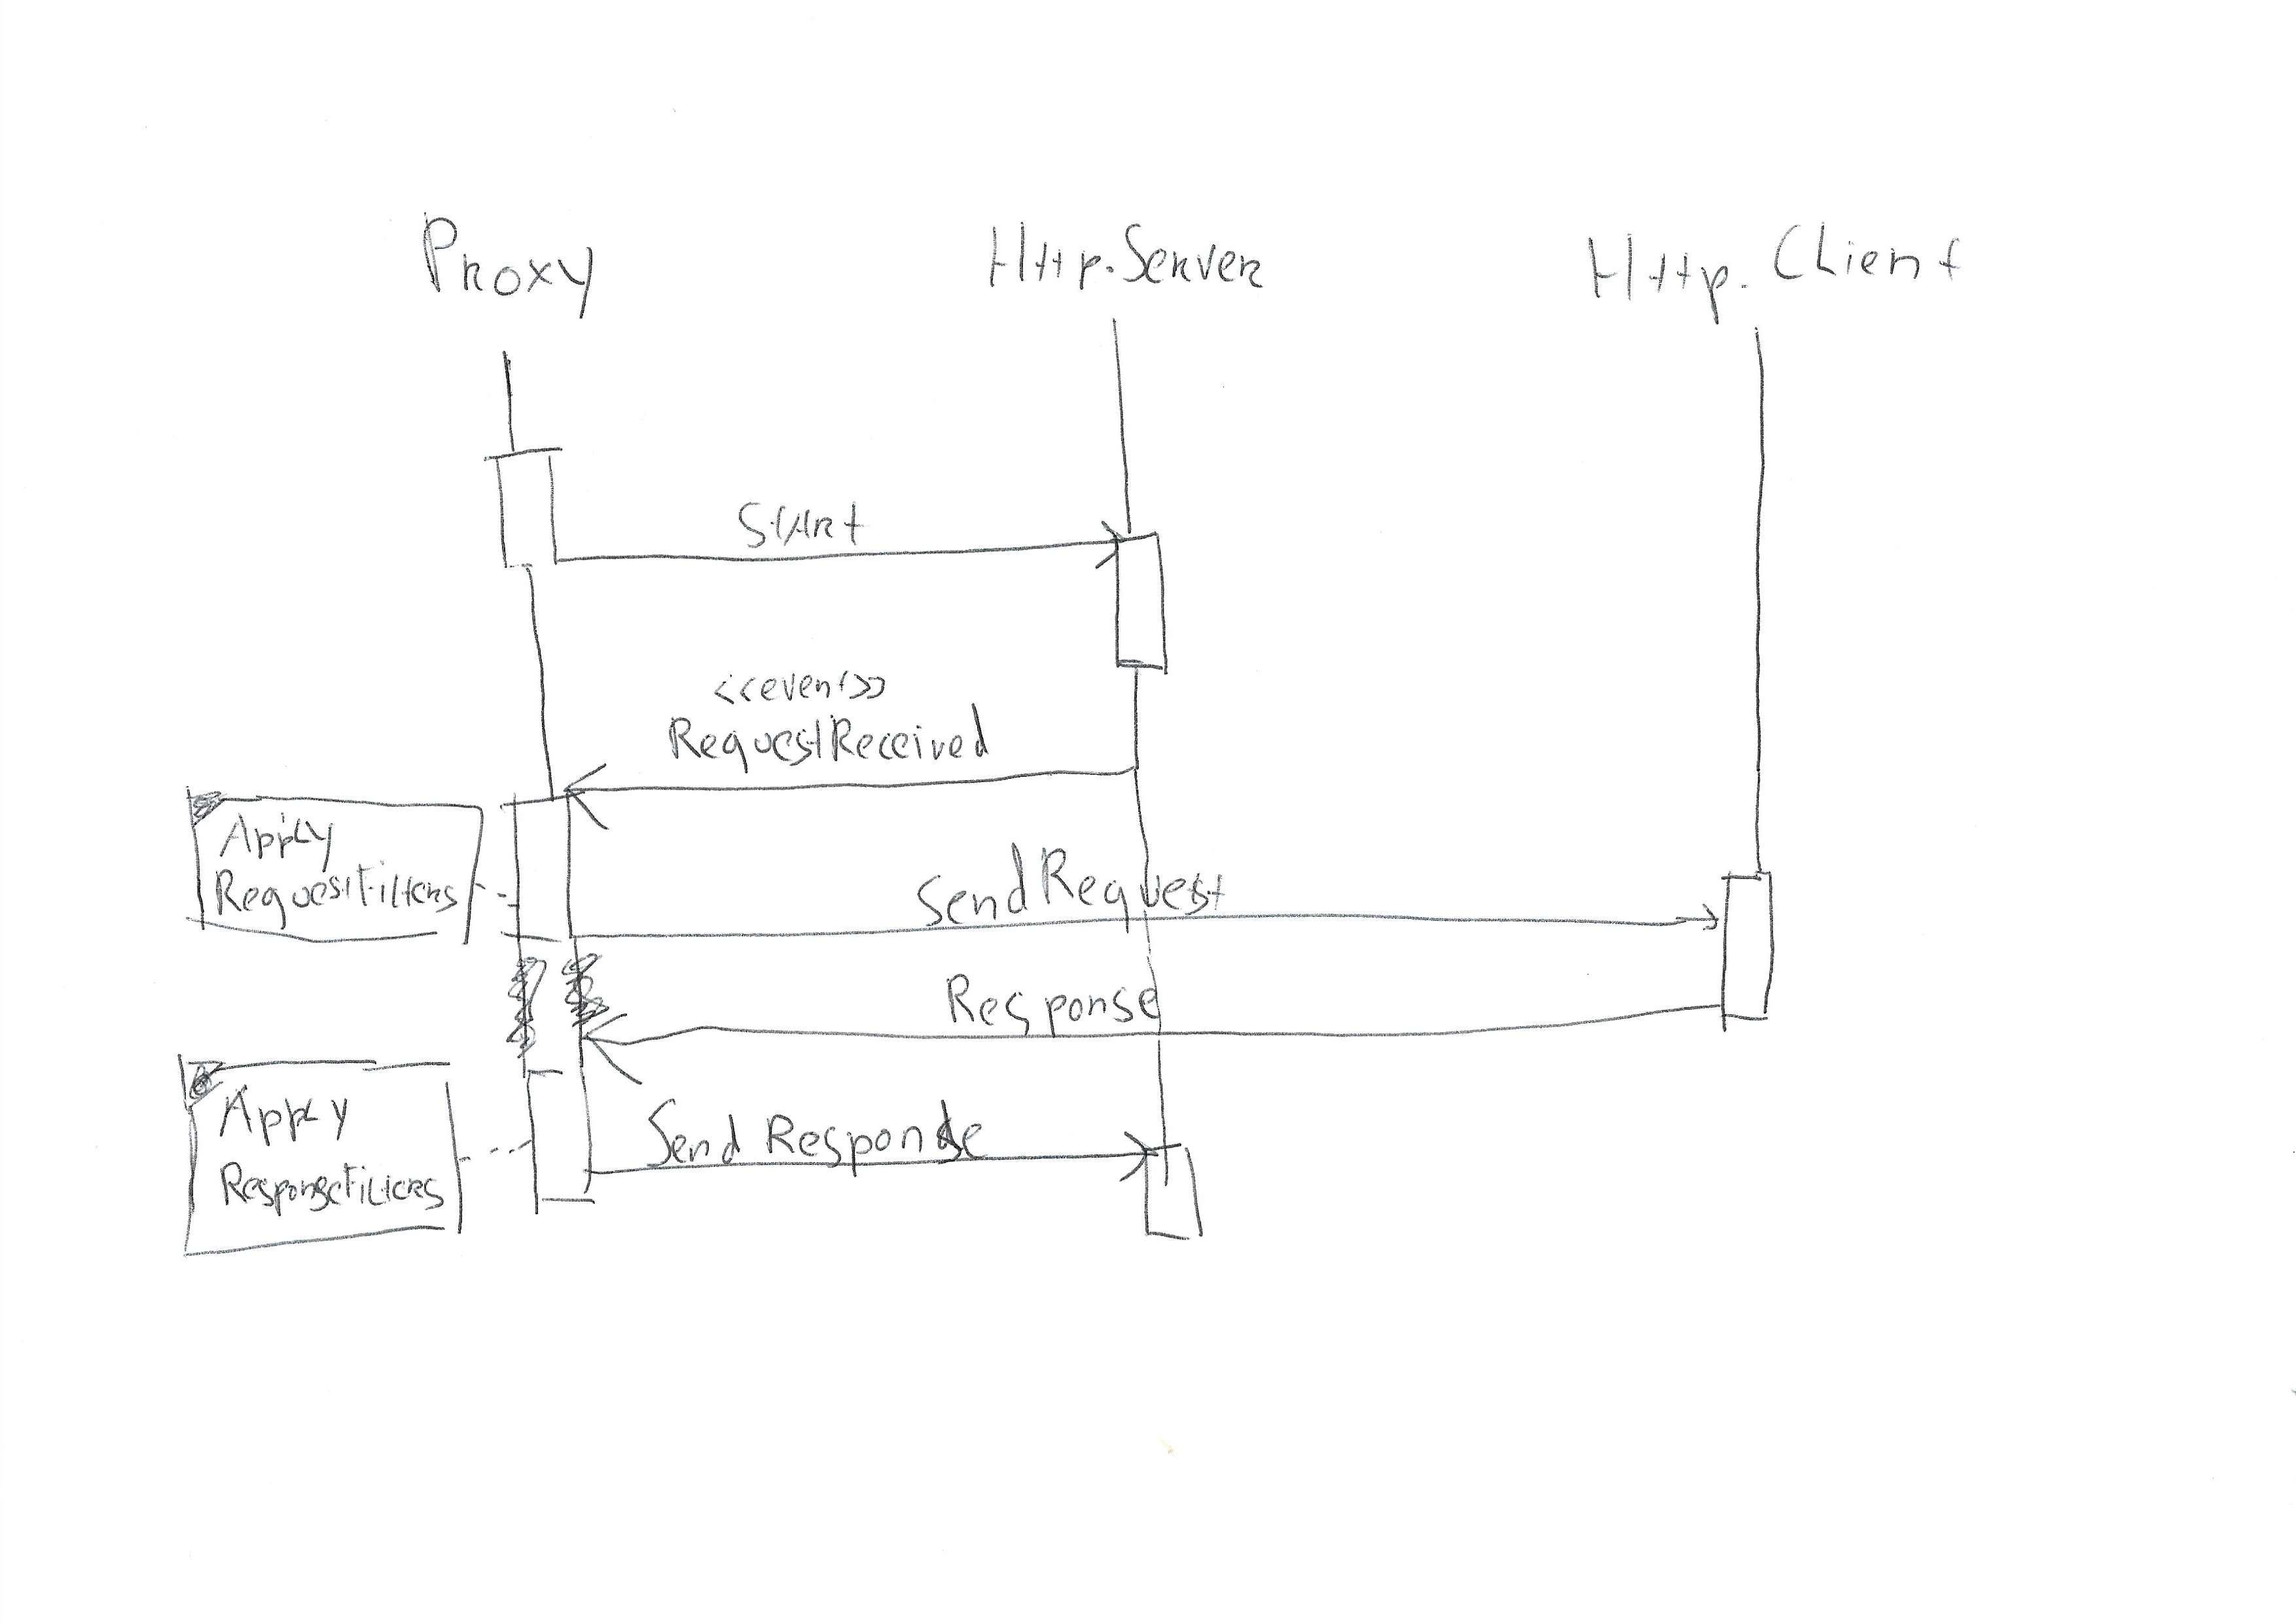 Proxy
Http.Server
Http.Client
Start
<<event>>
RequestReceived
Apply
RequestFilters
SendRequest
Response
Apply
ResponseFilters
Send Response